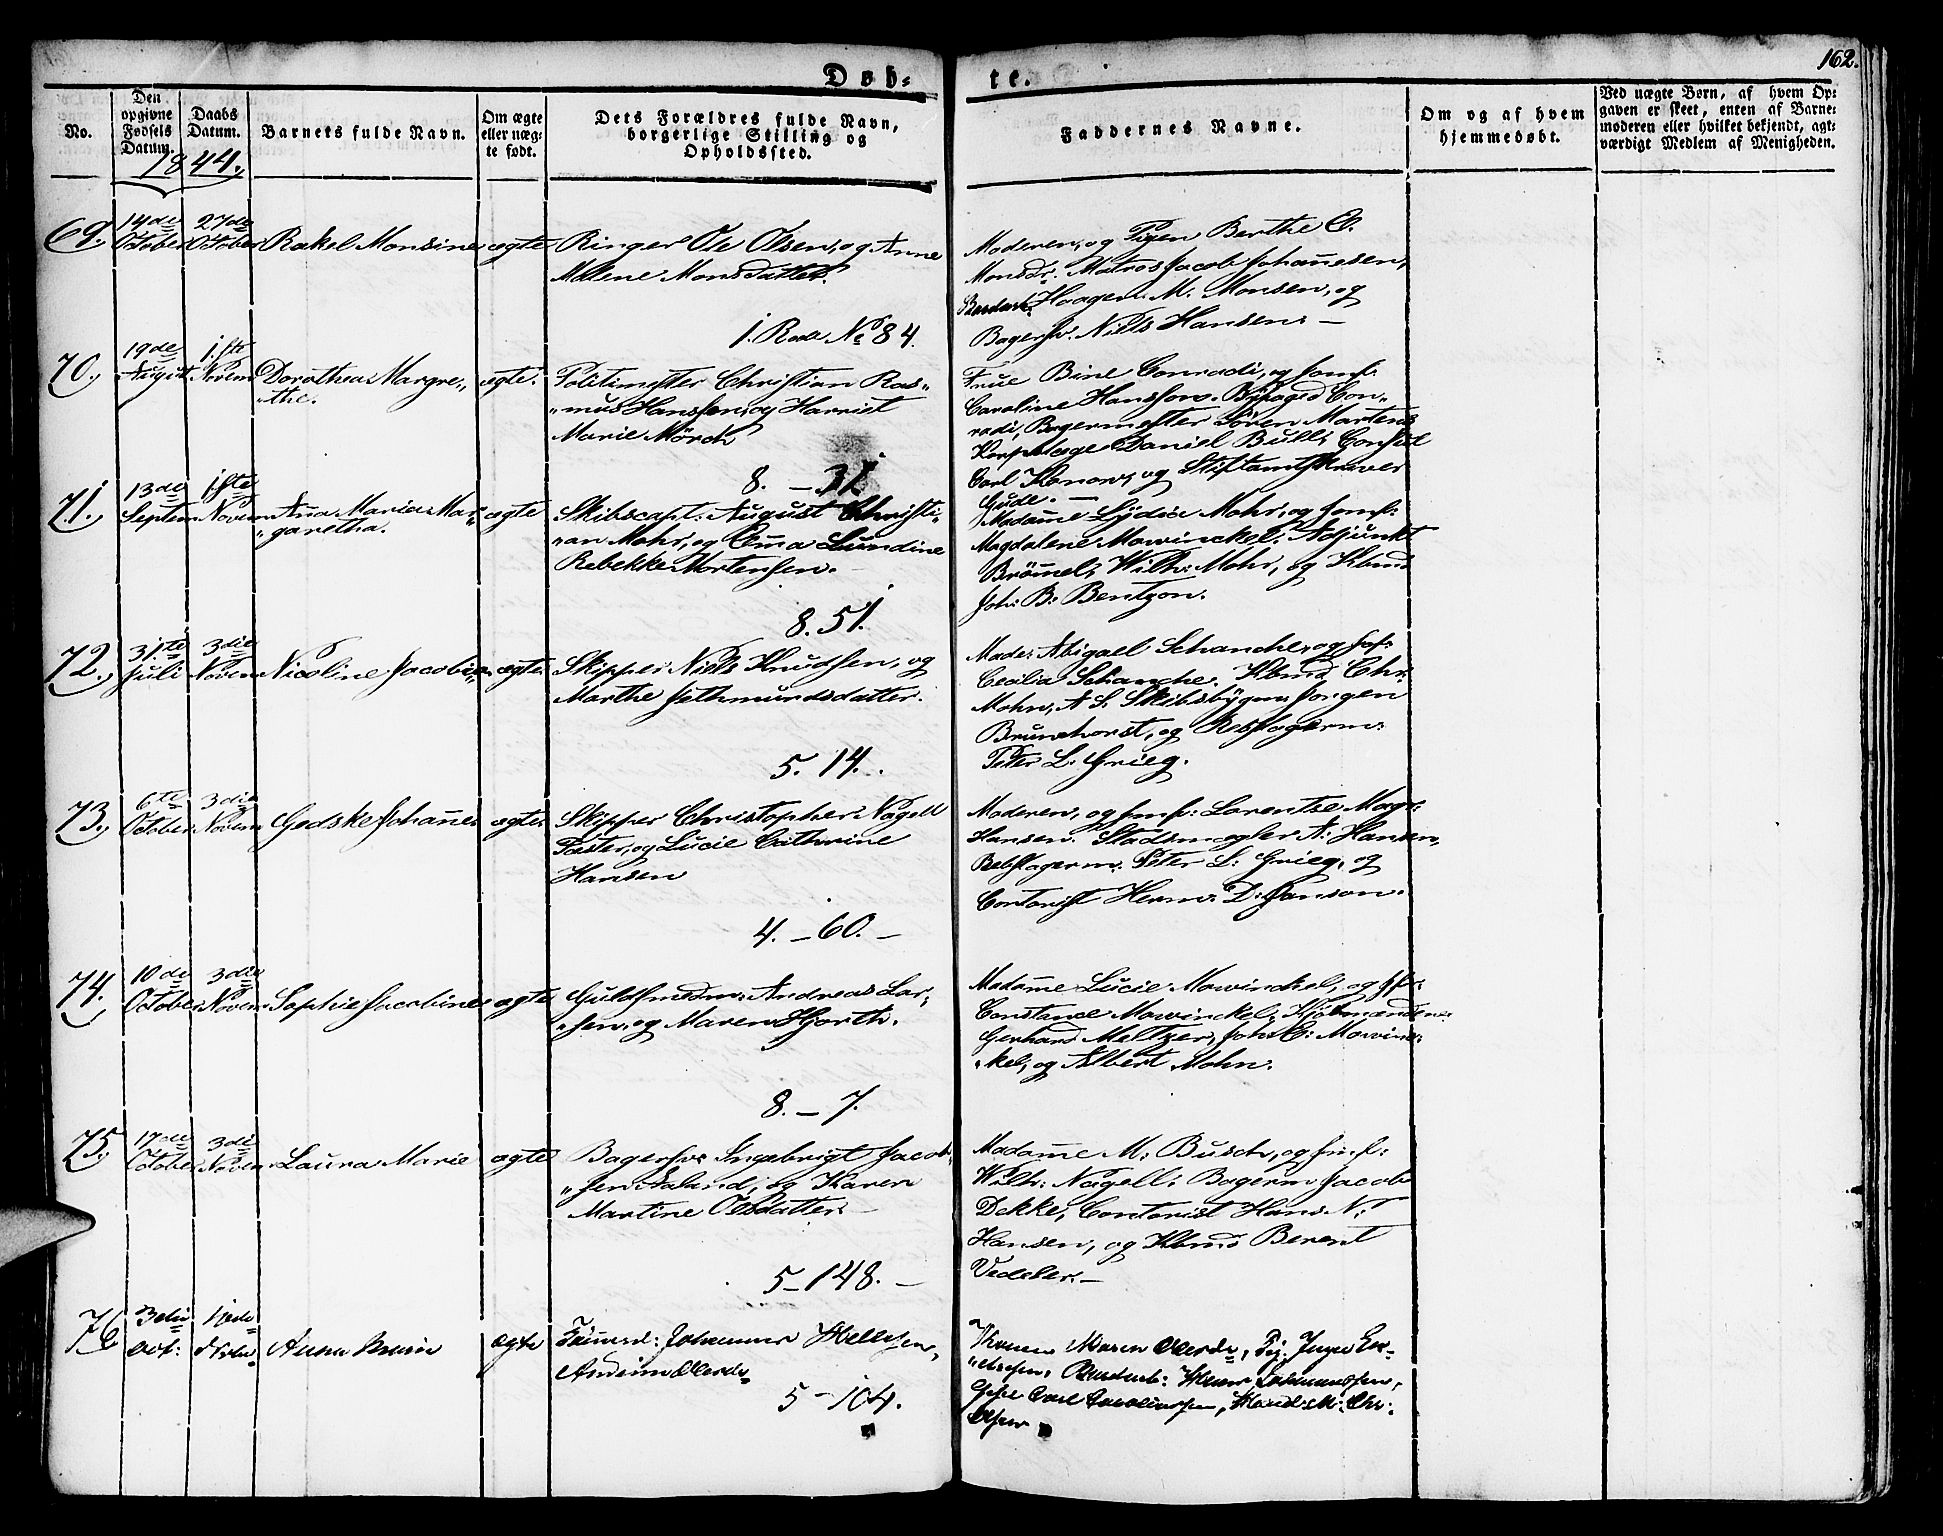 162.
Døb-
te.
No.
Den opgivne Fødsels Datum.
Daabs Datum.
1844.
Barnets fulde Navn.
Om ægte eller uægte født.
Dets Forældres fulde Navn, borgerlige Stilling og Opholdssted.
Faddernes Navne.
Om og af hvem hjemmedøbt.
Ved uægte Børn, af hvem Opgaven er skeet, enten af Barnemoderen eller hvilket bekjendt, agtværdigt Medlem af Menigheden.
69.
14de October
27de October
Rakel Monsine
ægte
Ringer Ole Olsen, og Anne
Malene Monsdatter.
1. Rode No 84.
Moderen, og Pigen Berthe O.
Monsdr. Matros Jacob Johannesen,
Haagen M. Monsen, og
Bagersv. Niels Hansen. —
70.
19de August
1ste Novem
Dorothea Margre„
„the.
ægte.
Politimester Christian Ras„
„mus Hanssen, og Harriet
Marie Mörch
8. — 31
Frue Bine Conradi, og Jomf.
Caroline Hansson. Byfoged Con„
radi, Borgermester Sören Martens
Korpslæge Daniel Bull, Consul
Carl Konow, og Stiftamtskriver
Gude. —
71.
13de Septem
1ste Novem
Ana Maria Mar„
„garetha.
ægte
Skibscapt: August Christi„
„an Mohr, og Ema Lundine
Rebekke Mortensen.
8. 51.
Madame Lydia Mohr, og Jomf:
Magdalene Mowinckel. Adjunkt
Brömel, Wilh: Mohr, og Kbmd
Joh: B: Bentzon.
72.
31te Juli
3die Novem
Nicoline Jacobi„
ægte
Skipper Niels Knudsen, og
Marthe Jethmundsdatter.
5. 14.
Made: Abigael Schanche, og Jof:
Cecilia Schanche. Kbmd Chr:
Mohn, A S. Skibsbygm: Jørgen
Brunchorst, og Rebslagerm:
Peter L. Grieg.
73.
6te October
3die Novem
Gedske Johane
ægte
Skipper Christopher Nagell
Faster, og Lucie Cathrine
Hansen
4. — 60. —
Moderen, og Jmf: Lorentse Margr:
Hansen. Stadsmægler A: Hansen,
Rebslagerm: Peter L: Grieg, og
Contorist Herm: D: Janson.
74.
10de October
3die Novem
Sophie Jacobine
ægte
Guldsmedm: Andreas Lar„
„sen, og Maren Hjorth.
8. — 7.
Madame Lucie Mowinckel, og Jfr:
Constance Mowinckel. Kjøbmændene
Gerhard Meltzer, Joh: E: Mowinc„
„kel, og Albert Mohn.
75.
17de October
3die Novem
Laura Marie
ægte
Bagersv: Ingebrigt Jacob„
„sen Aaland, og Karen
Martine Olsdatter.
5 — 148. —
Madame M: Busch, og Jmf:
Wilh: Nagell. Bagerm Jacob
Dekke, Contorist Hans N:
Hansen, og Kbmd Berent
Vedeler. —
76
3die Oct:
Anna
ægte
Johannes
5 — 104.
Maren
Olsen